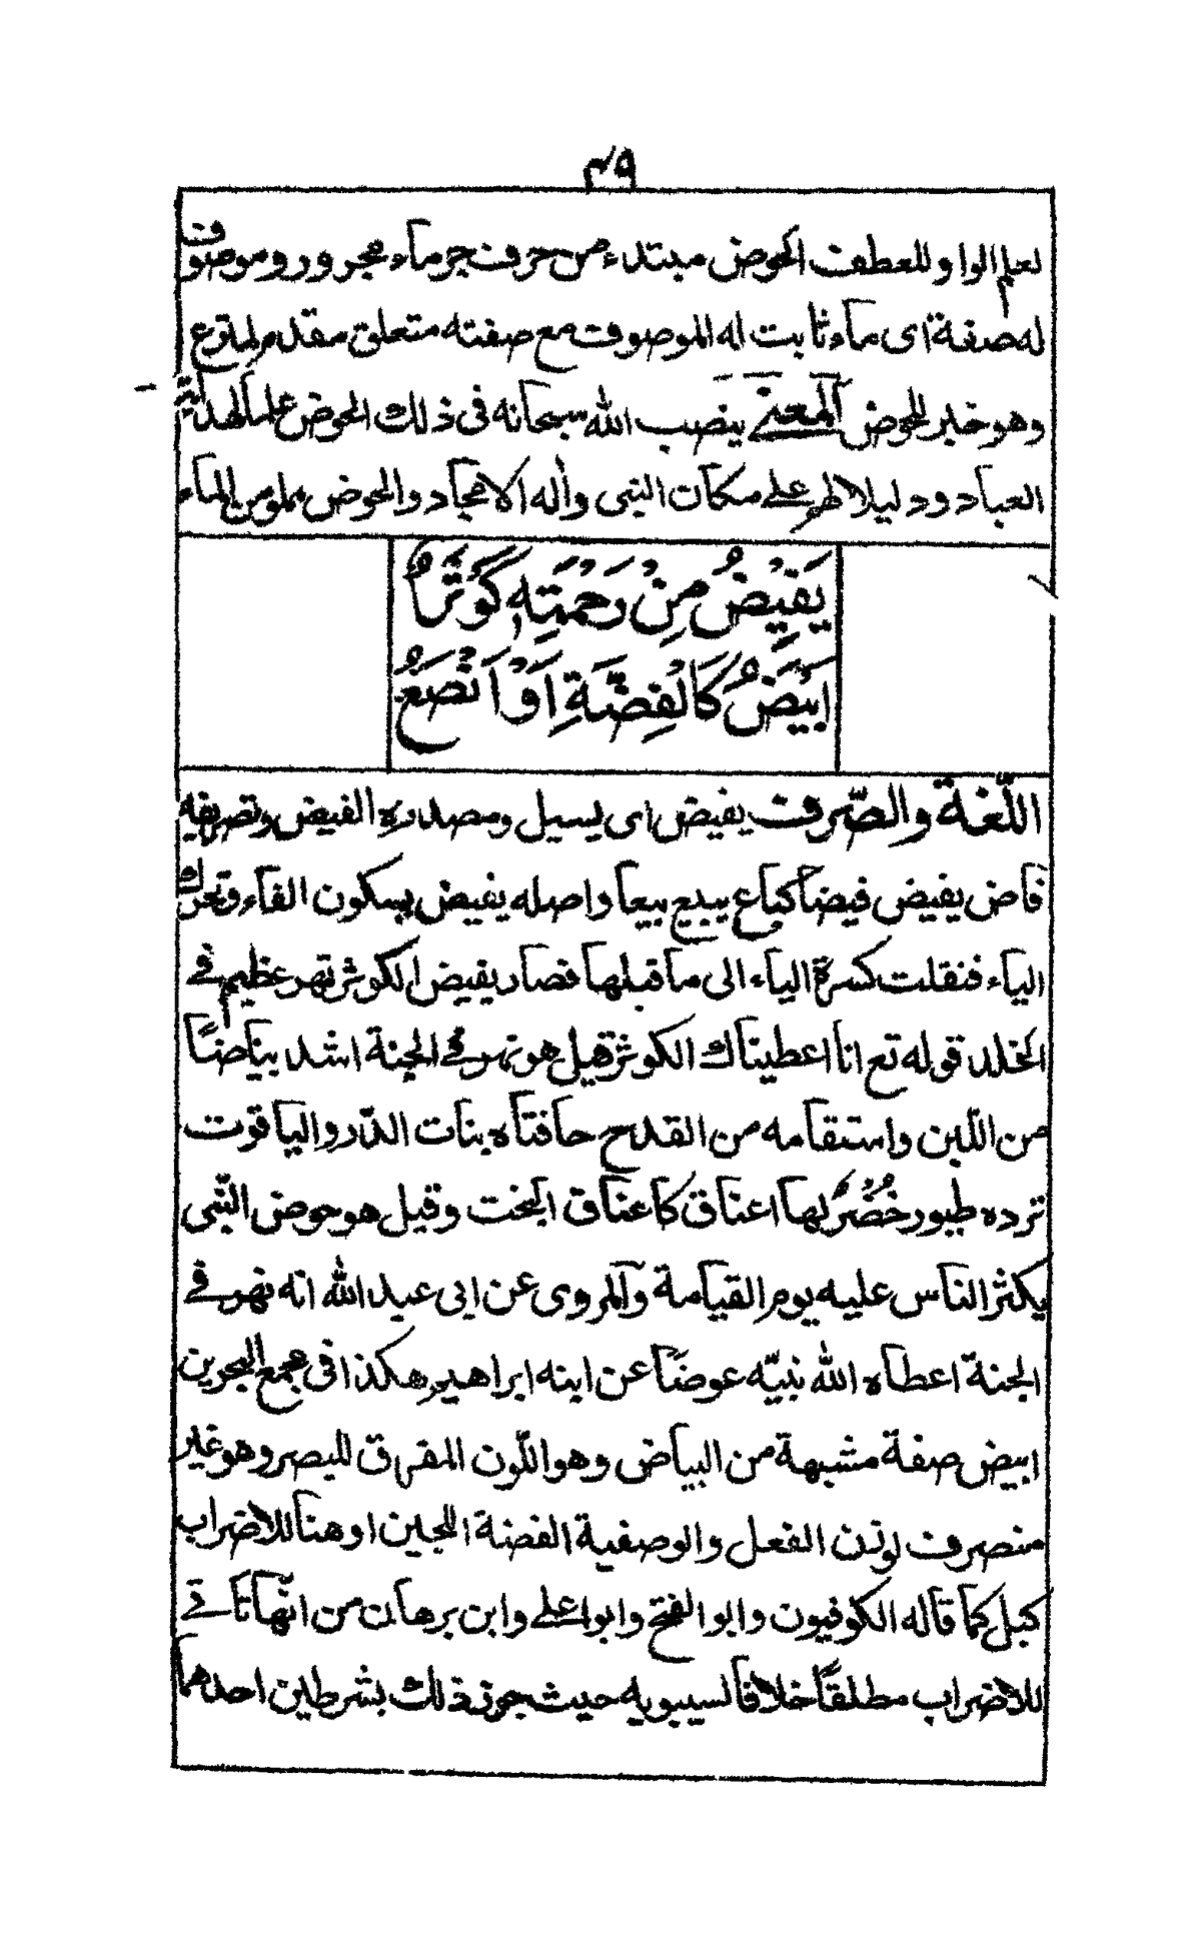 ٤٩
لعلم الواو للعطف الحوض مبتدء من حرف جر ماء مجرور وموصوف
له صفة اى ماء ثابت له الموصوف مع صفته متعلق مقدم لمترع
وهو خبر للحوض المعنے ينصب الله سبحانه فى ذلك الحوض علما لهداية
العباد ودليلا لهم علے مكان النبى واله الامجاد والحوض مملو من الماء
يَفِيْضُ مِنْ رَحْمَتِهٖ كَوْثَرٌ
اَبْيَضُ كَالْفِضَّةِ اَوْ اَنْصَعُ
اللّغة والصّرف يفيض اى يسيل ومصدره الفيض وتصريفه
فاض يفيض فيضا كباع يبيع بيعا واصله يفيض بسكون الفاء وتحرك
الياء فنقلت كسرة الياء الى ما قبلها فصار يفيض الكوثر نهر عظيم فے
الخلد قوله تع انا اعطيناك الكوثر قيل هو نهر فے الجنة اشد بياضًا
من اللّبن واستقامه من القدح حافتاه بنات الدّر والياقوت
ترده طيور خُضْرٌ لها اعناق كاعناق البخت وقيل هو حوض النّبى
يكثر الناس عليه يوم القيامة والمروى عن ابى عبد الله انه نهر فے
الجنة اعطاه الله نبيّه عوضًا عن ابنه ابراهيم هكذا فى مجمع البحرين
ابيض صفة مشبهة من البياض وهو اللّون المفرق للبصر وهو غير
منصرف لوزن الفعل والوصفية الفضة اللجين او هنا للاضراب
كبل كما قاله الكوفيون وابو الفتح وابو علے وابن برهان من انّها تاتے
للاضراب مطلقًا خلافا لسيبويه حيث جوز ذلك بشرطين احدهما